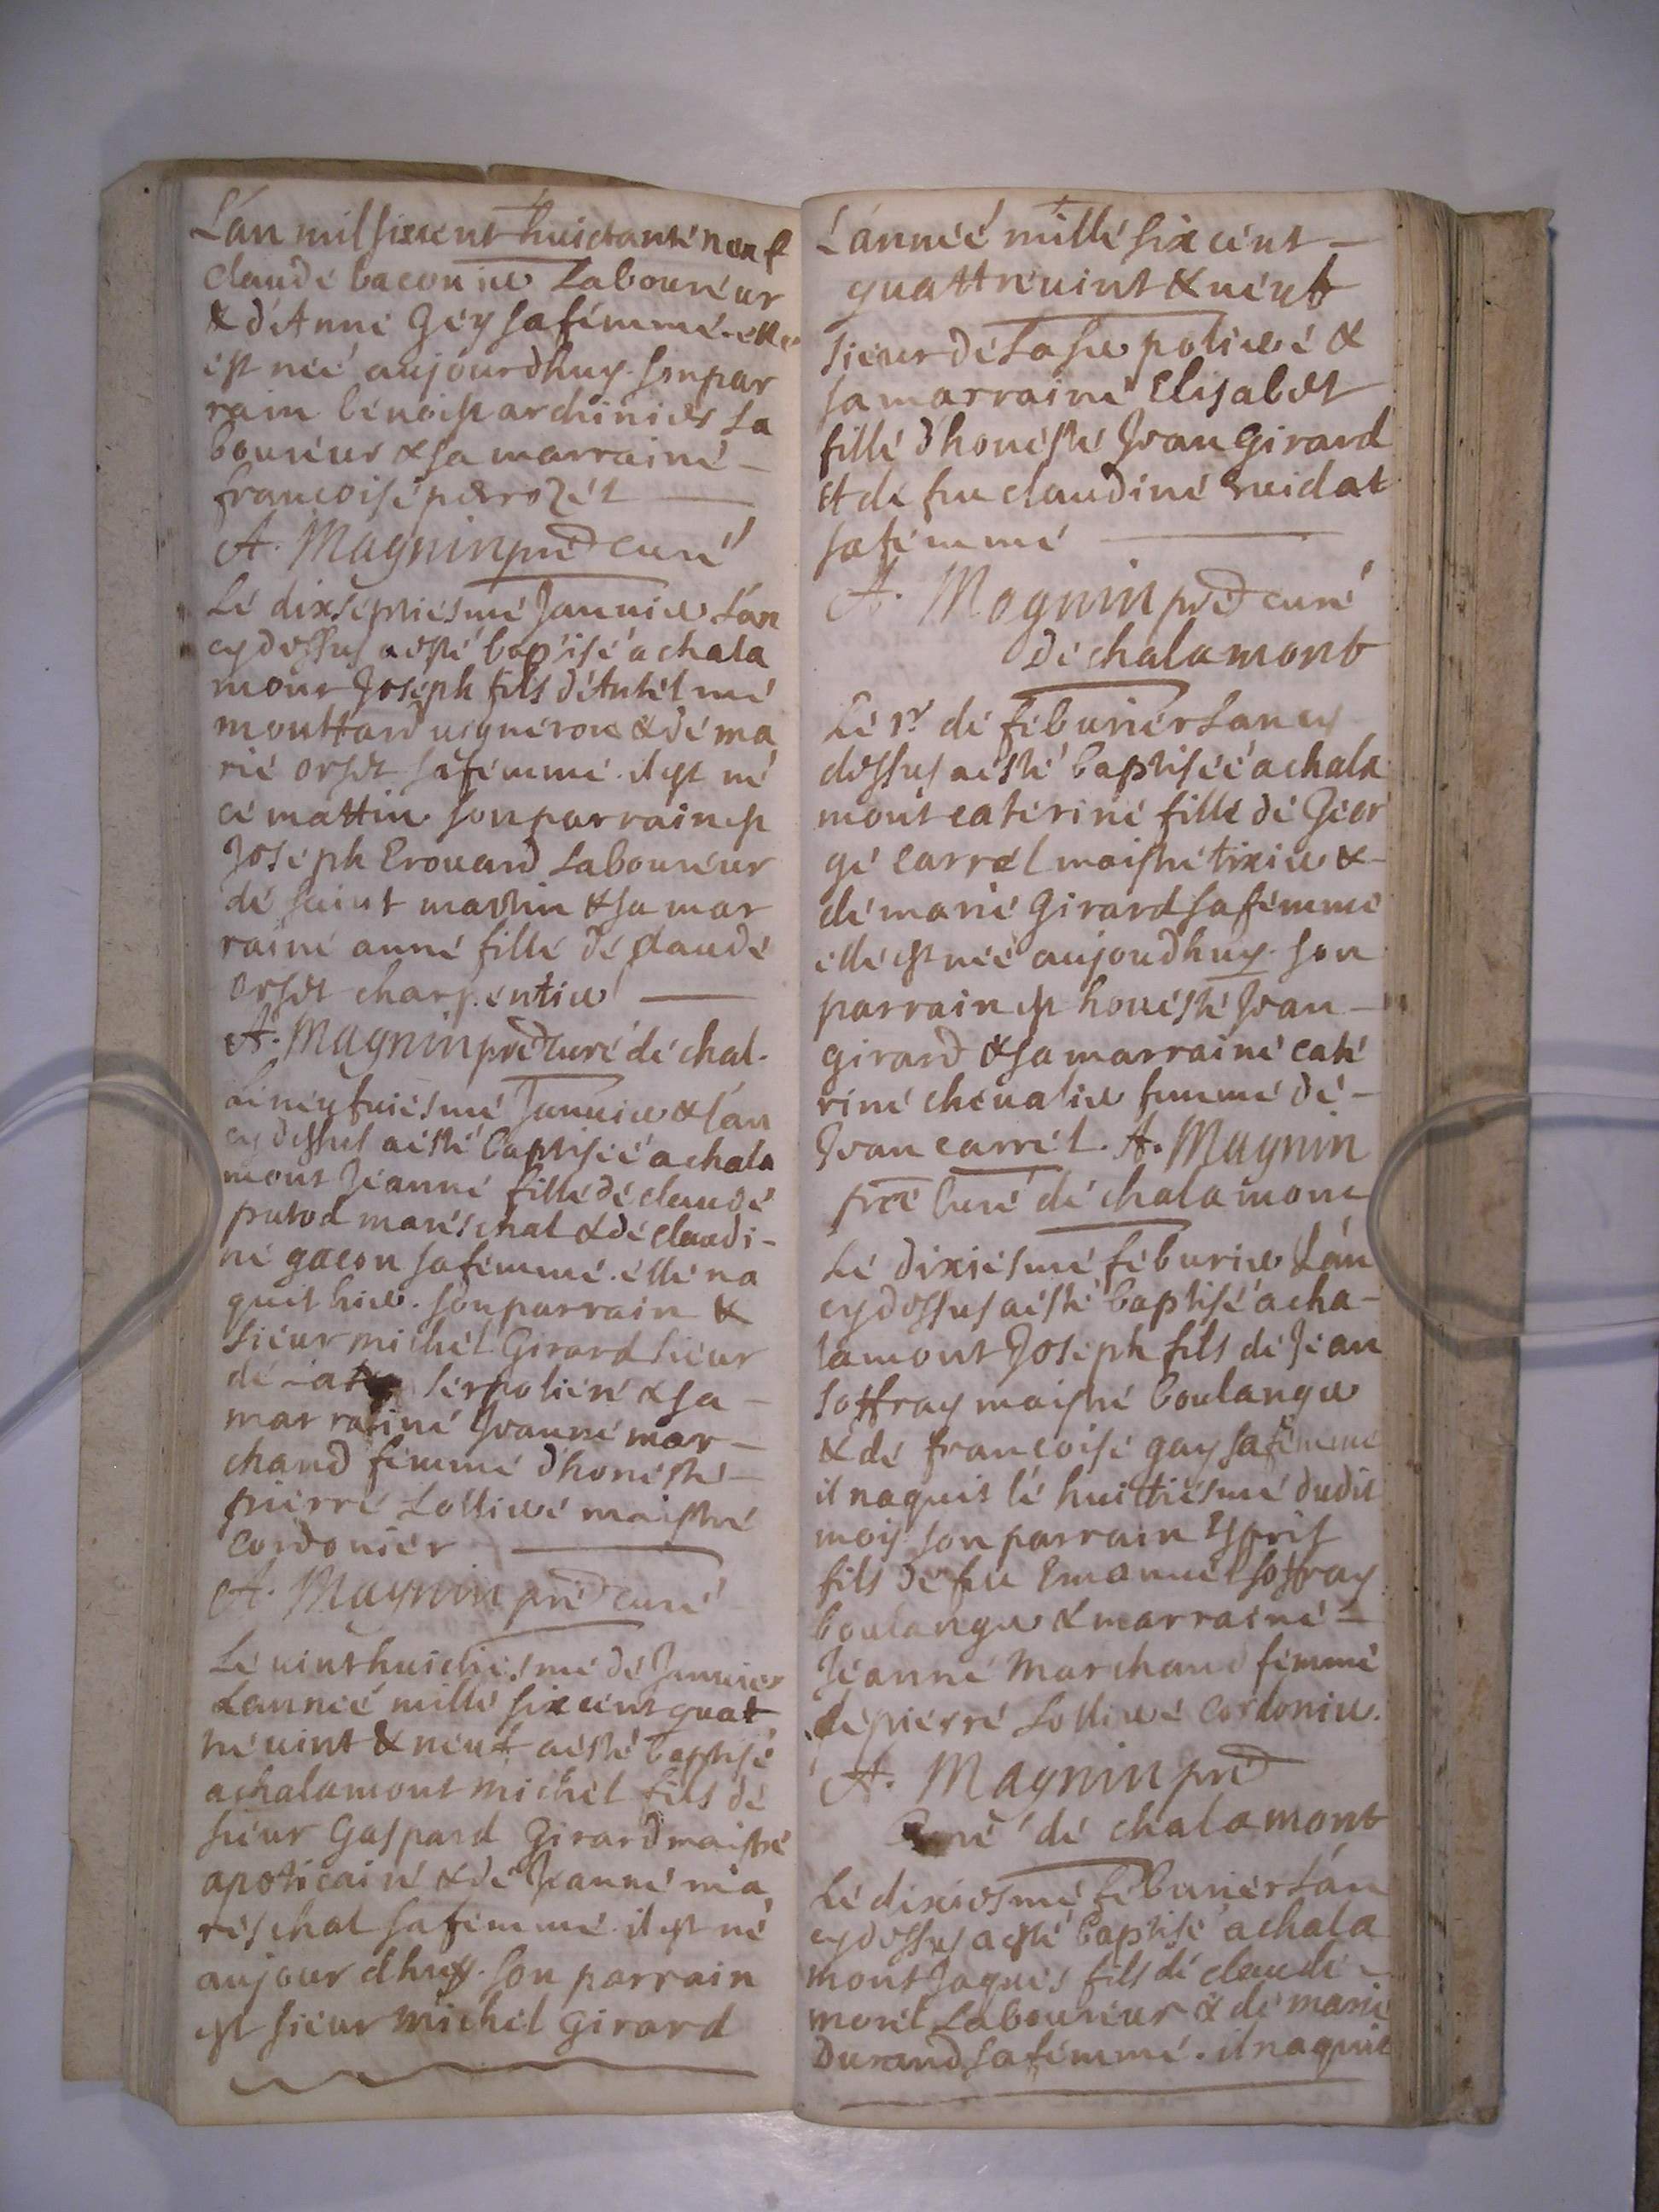 L'an mil sixcent huictanté neuf
claudé baconier Labouréur
& d'Anné Géy safémmé. ellé
est néé aujourdhuy. son par
rain bénoist archinier La
bouréur & sa marrainé –
francoisé perrozét
A. Magnin pré curé
Lé dixséptiésmé Januier L'an
cydessus aesté baptisé a chala
mont Joséph fils d'Antélmé
monttard uignéron & dé ma
rié orset safémmé. il est né
cé mattin. son parrain est
Joséph Erouard Labouréur
dé saint martin & sa mar
rainé anné fillé dé claudé
orset charpéntier
A. Magnin pré curé dé chal.
Lé neufuiésmé Januier & l'an
cy dessus aésté baptiséé a chala
mont Jéanné fillé dé claudé
putod maréschal & dé claudi-
né gacon safémmé. éllé na
quit hier. son parrain &
siéur michél Girard siéur
dé sérpoliéré & sa –
marrainé Jeanné mar-
chand fémmé d'honésté –
piérré Lolliéré maistré
cordoniér
A. Magnin pré curé
Lé uint huictiésmé dé Januier
Lannéé millé six cent quat
réuint & neuf aésté baptisé
a chalamont michél fils dé
siéur Gaspard Girard maistré
apoticairé & dé Jeanné ma
réschal safémmé. il est né
aujour dhuy. son parrain
est siéur michél Girard
L'annéé millé six cént –
quattréuint & néuf
siéur dé La ser poliéré &
sa marrainé Elisabet
fillé d'honésté Jean Girard
et dé feu claudiné ruidat
safémmé
A. Magnin pré curé
dé chalamont
Lé 1r. dé féburiér Lan cy
dessus aésté baptiséé a chala
mont catériné fillé dé Géor
gé carrél maistré tixier &
dé marié Girard safémmé
éllé est néé aujoudhuy. son
parrain est honésté Jean –
girard & sa marrainé caté
riné chéualier femmé dé –
Jean carrél. A. Magnin
pré curé dé chalamont
Lé dixiésmé féburier L'an
cydessus aésté baptisé a cha-
lamont Joséph fils dé Jéan
soffray maistré boulanger
& dé francoisé gay safémmé
il naquit lé huittiésmé dudit
mois son parrain Esprit
fils dé feu Emanuél soffray
boulanger & marrainé –
Jéanné Marchand fémmé
dé piérré Lolliéré cordonier.
A. Magnin pré
curé dé chalamont
Lé dixiesmé féburiér L'an
cydessus aésté baptisé a chala
mont Jaqués fils dé claudé –
morél Labouréur & dé marié
Durand safémmé. il naquit